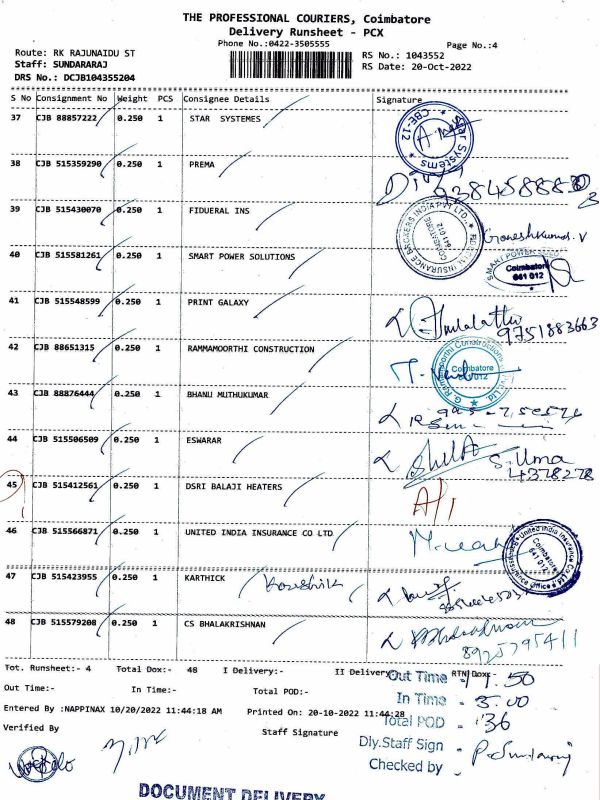 THE PROFESSIONAL COURIERS, Coimbatore
Delivery Runsheet - PCX
Phone No.:0422-3505555
Page No.:4
Route: RK RAJUNAIDU ST
RS No.: 1043552
Staff: SUNDARARAJ
RS Date: 20-Oct-2022
DRS No.: DCJB104355204
S No Consignment No Weight PCS Consignee Details Signature
37 CJB 88857222 0.250 1 STAR SYSTEMES
Star Systems CBE-12
38 CJB 515359290 0.250 1 PREMA
39 CJB 515430070 0.250 1 FIDUERAL INS
COIMBATORE 641 012
Ganeshkumar. V
40 CJB 515581261 0.250 1 SMART POWER SOLUTIONS
Coimbatore 641 012
41 CJB 515548599 0.250 1 PRINT GALAXY
9751883663
42 CJB 88651315 0.250 1 RAMMAMOORTHI CONSTRUCTION
G. Rammamoorthi Constructions Coimbatore
43 CJB 88876444 0.250 1 BHANU MUTHUKUMAR
44 CJB 515506509 0.250 1 ESWARAR
S. Uma
45 CJB 515412561 0.250 1 DSRI BALAJI HEATERS
46 CJB 515566871 0.250 1 UNITED INDIA INSURANCE CO LTD
Coimbatore 641 012
47 CJB 515423955 0.250 1 KARTHICK Koushik
48 CJB 515579208 0.250 1 CS BHALAKRISHNAN
8925795411
Tot. Runsheet:- 4 Total Dox:- 48 I Delivery:- II Delivery RTN Dox:-
Out Time - 11.50
Out Time:- In Time:- Total POD:-
In Time - 3.00
Entered By :NAPPINAX 10/20/2022 11:44:18 AM Printed On: 20-10-2022 11:44:28
Total POD - 36
Verified By Staff Signature
Dly.Staff Sign -
Checked by -
DOCUMENT DELIVERY